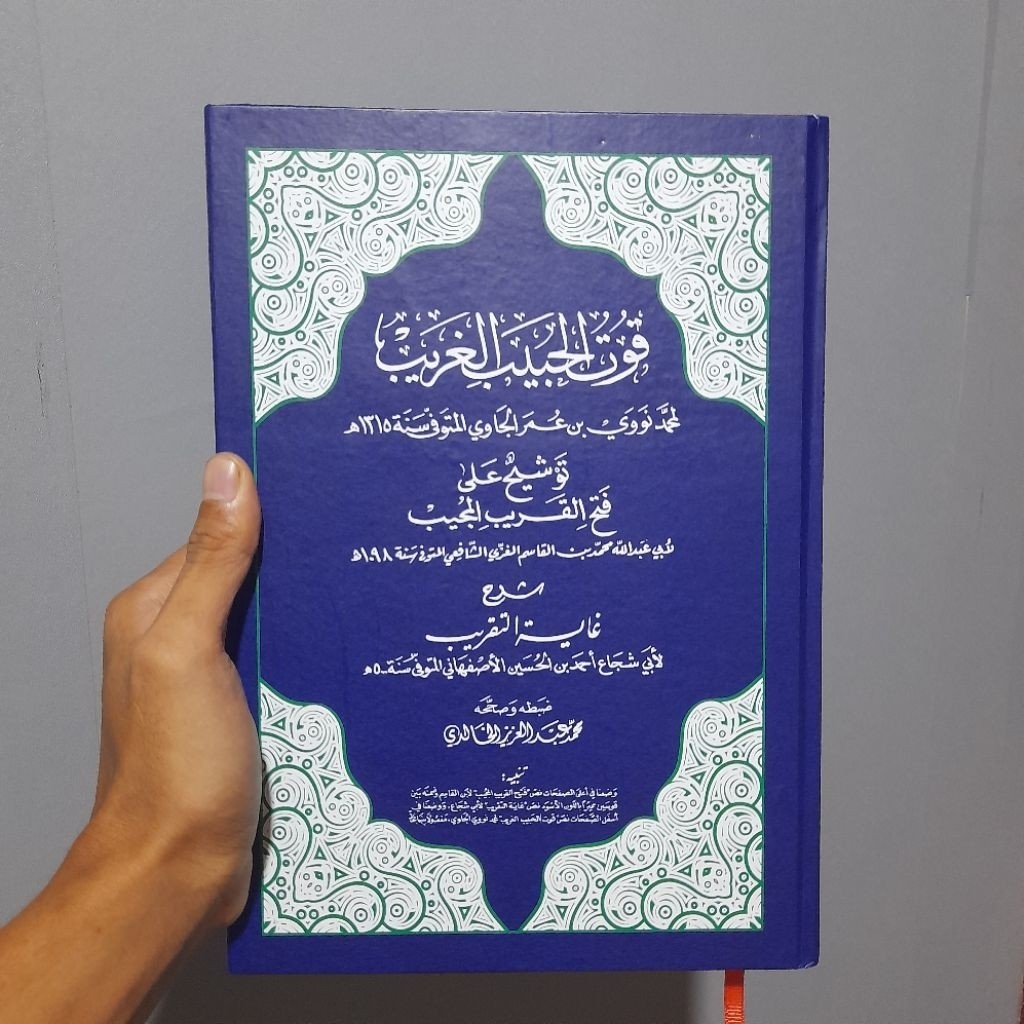 قُوتُ الحَبِيبِ الغَرِيبِ
لمحمَّد نَوَوي بن عُمَر الجَاوي المتَوَفىّ سَنَة ١٣١٥ه
تَوْشِيحٌ عَلى
فَتْحِ القَرِيبِ المُجِيبْ
لأبي عَبد اللّه محمّد بن القاسم الغزّي الشّافِعي المتوفى سَنة ١٠٩٨ه
شرح
غاية التقريب
لأبي شجَاع أحمَد بن الحُسَين الأصْفهَاني المتوفىّ سَنَة ٥٠٠ه
ضبَطه وَصحَّحه
محمّد عَبد العزيز الخالدي
تنبيه:
وَضعنا في أعلى الصفحات نصّ فتح القريب المجيب لابن القاسم وضمنه بين
قوسين مميزًا باللون الأسود نصّ غاية التقريب لأبي شجاع، ووضعنا في
أسفل الصَّفحات نصّ قوت الحبيب الغريب لمحمد نووي الجاوي، مفصولاً بينهما